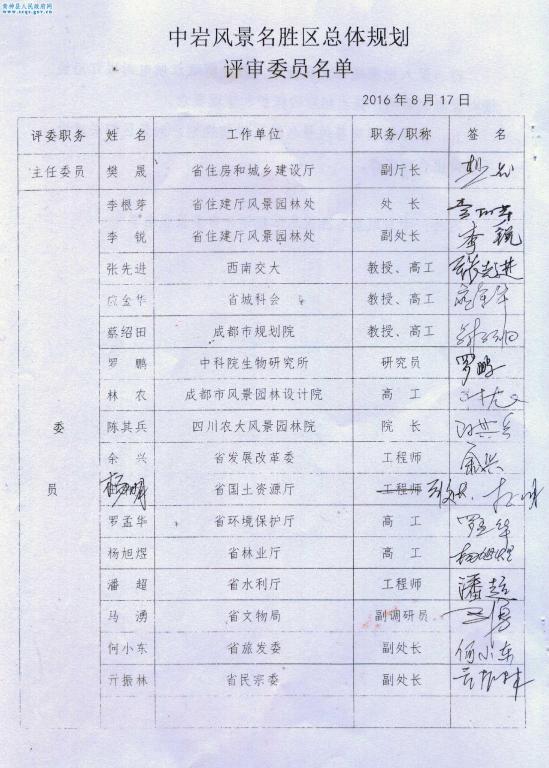 青神县人民政府网
www.scqs.gov.cn
中岩风景名胜区总体规划
评审委员名单
2016年8月17日
评委职务 姓 名 工作单位 职务/职称 签 名
主任委员 樊 晟 省住房和城乡建设厅 副厅长
委 员
李根芽 省住建厅风景园林处 处 长
李 锐 省住建厅风景园林处 副处长 李锐
张先进 西南交大 教授、高工 张先进
应金华 省城科会 教授、高工 应金华
蔡绍田 成都市规划院 教授、高工
罗 鹏 中科院生物研究所 研究员 罗鹏
林 农 成都市风景园林设计院 高 工
陈其兵 四川农大风景园林院 院 长 陈其兵
余 兴 省发展改革委 工程师 余兴
省国土资源厅 工程师
罗孟华 省环境保护厅 高 工 罗孟华
杨旭煜 省林业厅 高 工 杨旭煜
潘 超 省水利厅 工程师 潘超
马 湧 省文物局 副调研员
何小东 省旅发委 副处长 何小东
亓振林 省民宗委 副处长 亓振林